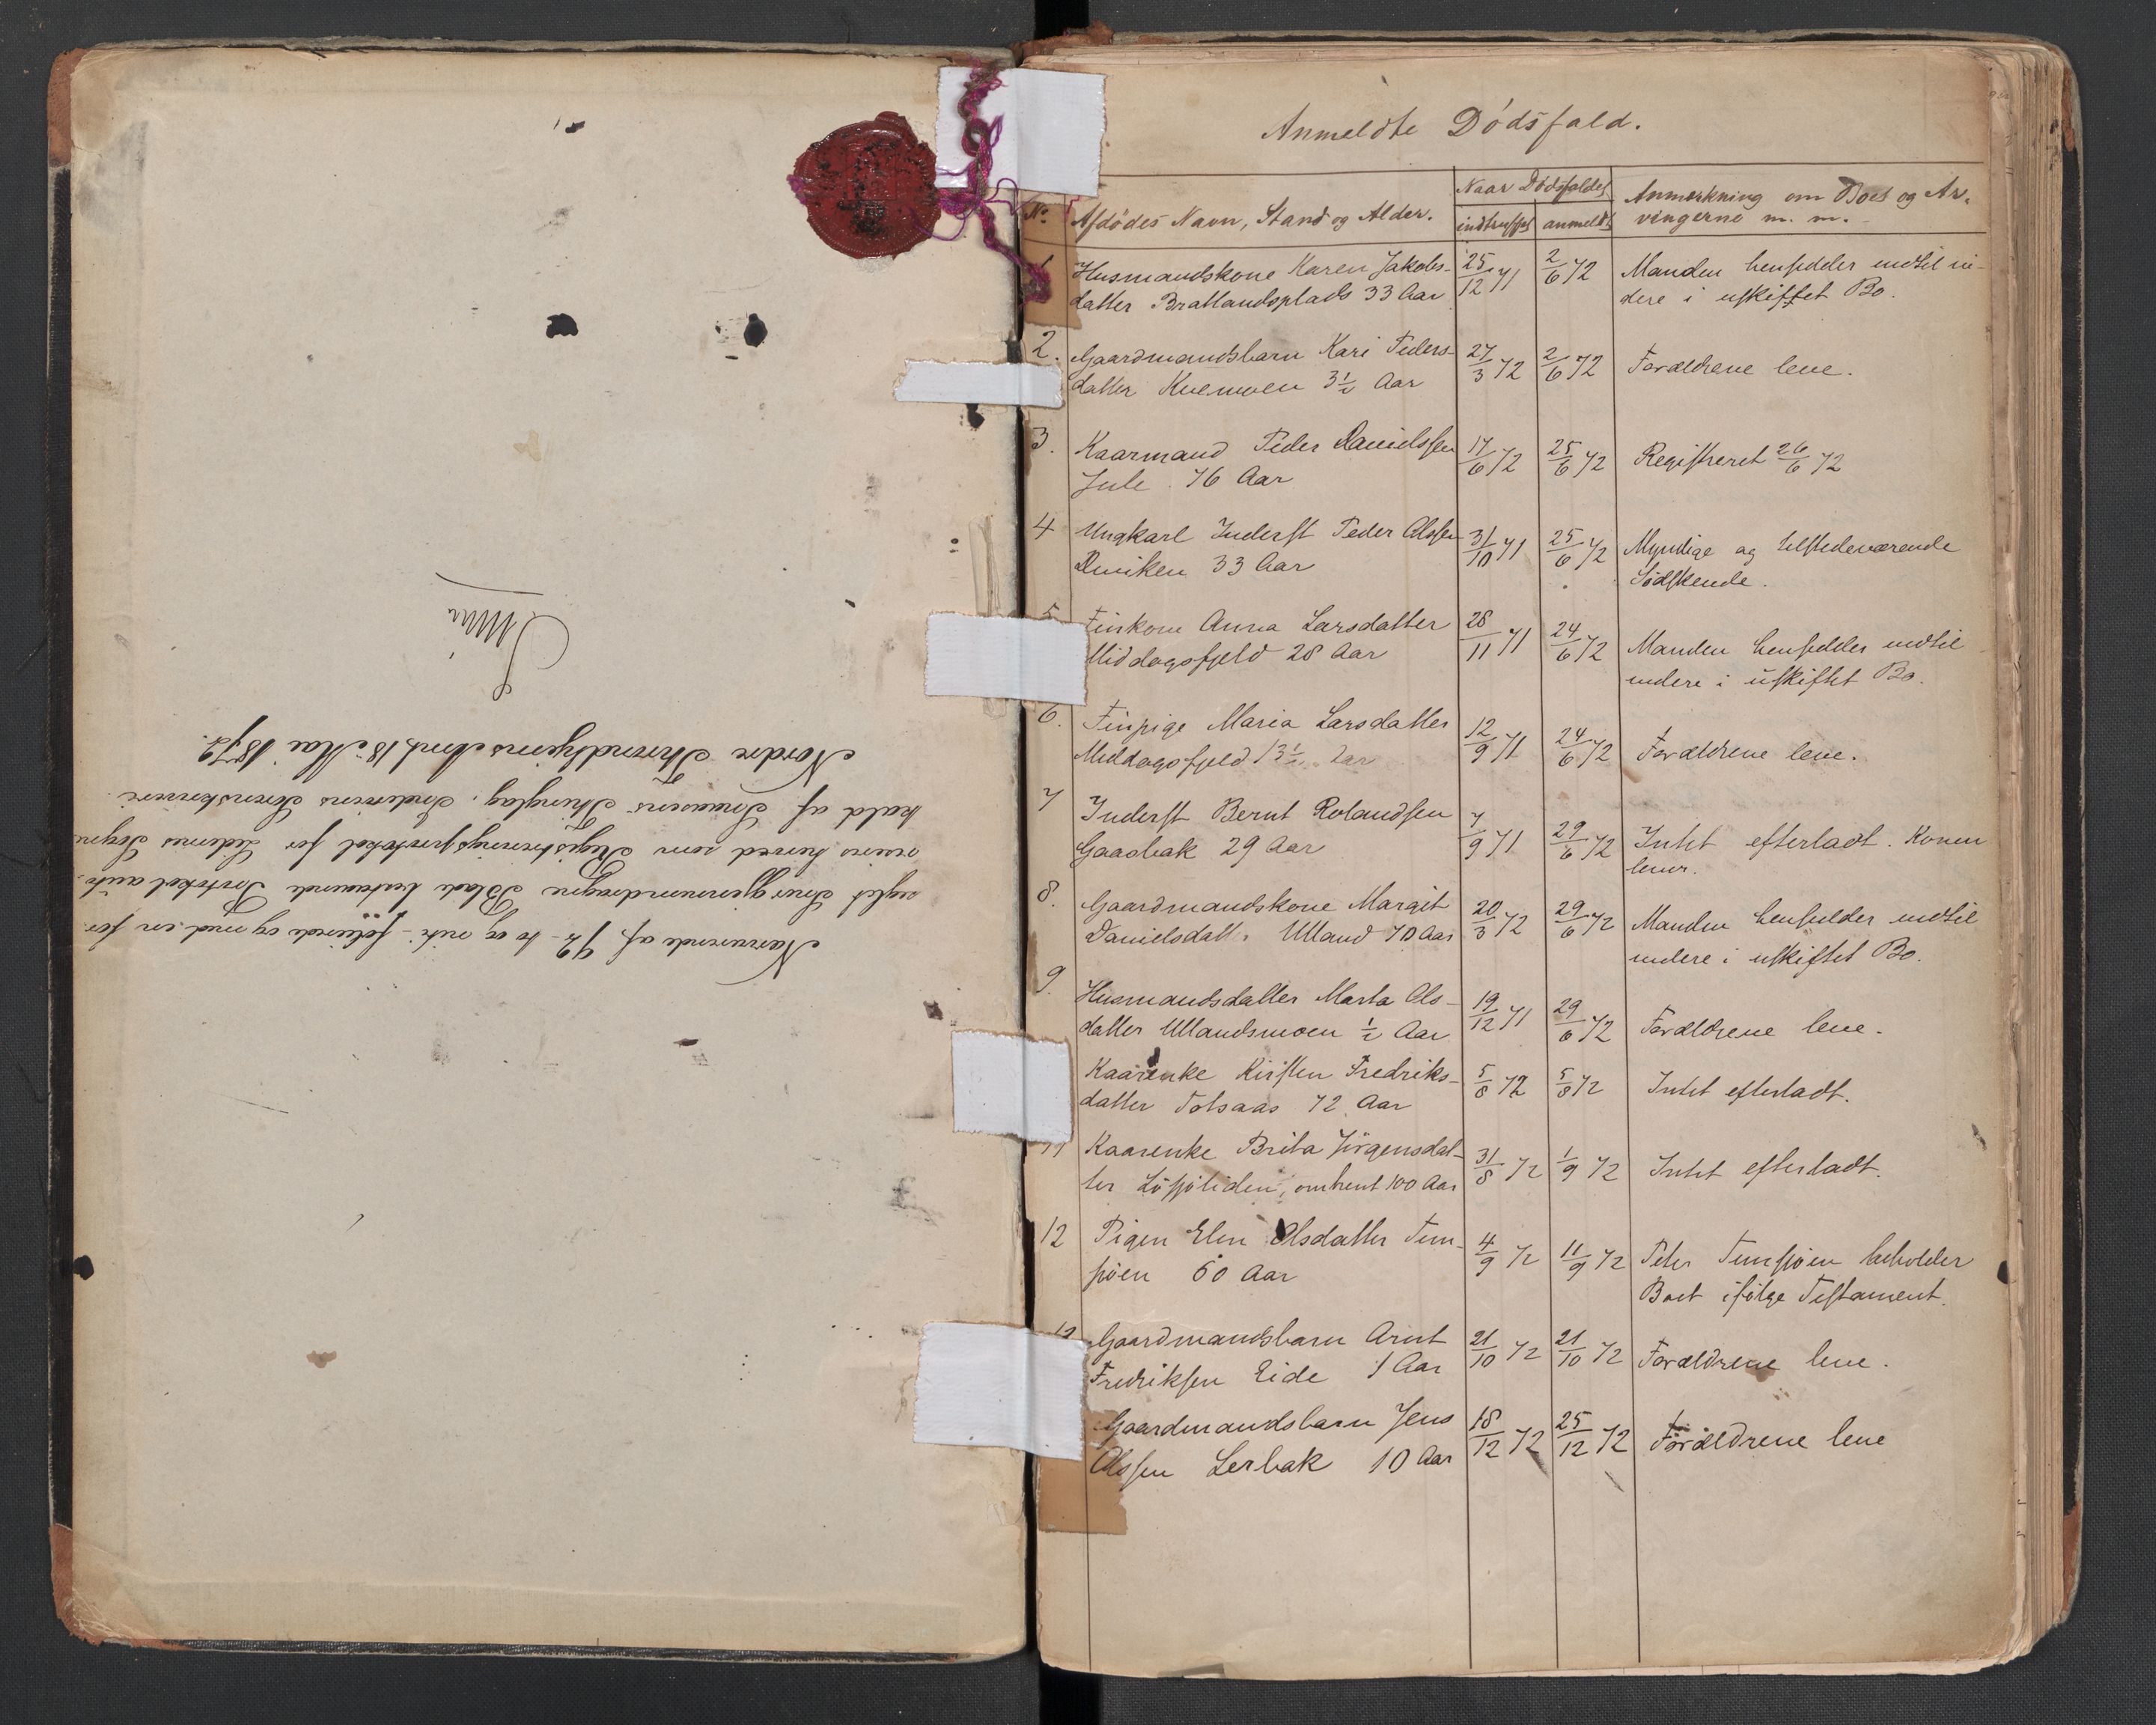 Nærværende af 92 - to og niti - folierede og med en for-
seglet Snor gjennemdragne Blade bestaaende Protokol auto-
riseres herved som Registreringsprotokol for Lidernes Sogne-
kald af Snaasens Thinglag, Inderøens Sorenskriveri.
Nordre Throndhjems Amt, 18 Mai 1872.
Anmeldte Dødsfald.
No. Afdødes Navn, Stand og Alder. Naar Dødsfaldet indtruffet anmeldt Anmærkning om Boet og Ar-
vingerne m. m.
1 Husmandskone Karen Jakobs- 25/12 71 2/6 72 Manden hensidder indtil vi-
datter Bratlandsplads 33 Aar dere i uskiftet Bo.
2. Gaardmandsbarn Kari Peders- 27/3 72 2/6 72 Forældrene leve.
datter Kvemoen 3½ Aar
3. Kaarmand Peder Danielssen 17/6 72 25/6 72 Registreret 26/6 72
Jule 76 Aar
4 Ungkarl Inderst Peder Olssen 31/10 71 25/6 72 Myndige og tilstedeværende
Deviken 33 Aar Sødskende.
5 Finkone Anna Larsdatter 28/11 71 24/6 72 Manden hensidder indtil
Middagsfjeld 28 Aar videre i uskiftet Bo.
6. Finpige Maria Larsdatter 12/9 71 24/6 72 Forældrene leve.
Middagsfjeld 13½ Aar
7 Inderst Bernt Rolandsen 7/9 71 29/6 72 Intet efterladt. Konen
Gaasbak 29 Aar lever.
8. Gaardmandskone Margit 20/3 72 29/6 72 Manden hensidder indtil
Danielsdatt. Ulland 70 Aar videre i uskiftet Bo.
9. Husmandsdatter Marta Ols- 19/12 71 29/6 72 Forældrene leve.
datter Ullandsmoen ½ Aar
Kaarenke Kirsten Fredriks- 5/8 72 5/8 72 Intet efterladt.
datter Totsaas 72 Aar
11 Kaarenke Brita Jörgensdat- 31/8 72 1/9 72 Intet efterladt.
ter Löfsöliden, omtrent 100 Aar
12 Pigen Elen Olsdatter Tun- 4/9 72 11/9 72 Peter Tunsjöen beholder
sjöen 60 Aar Boet ifölge Testament.
13 Gaardmandsbarn Arnt 21/10 72 21/10 72 Forældrene leve.
Fredriksen Eide 1 Aar
Gaardmandsbarn Jens 18/12 72 25/12 72 Forældrene leve
Olssen Lerbak 10 Aar